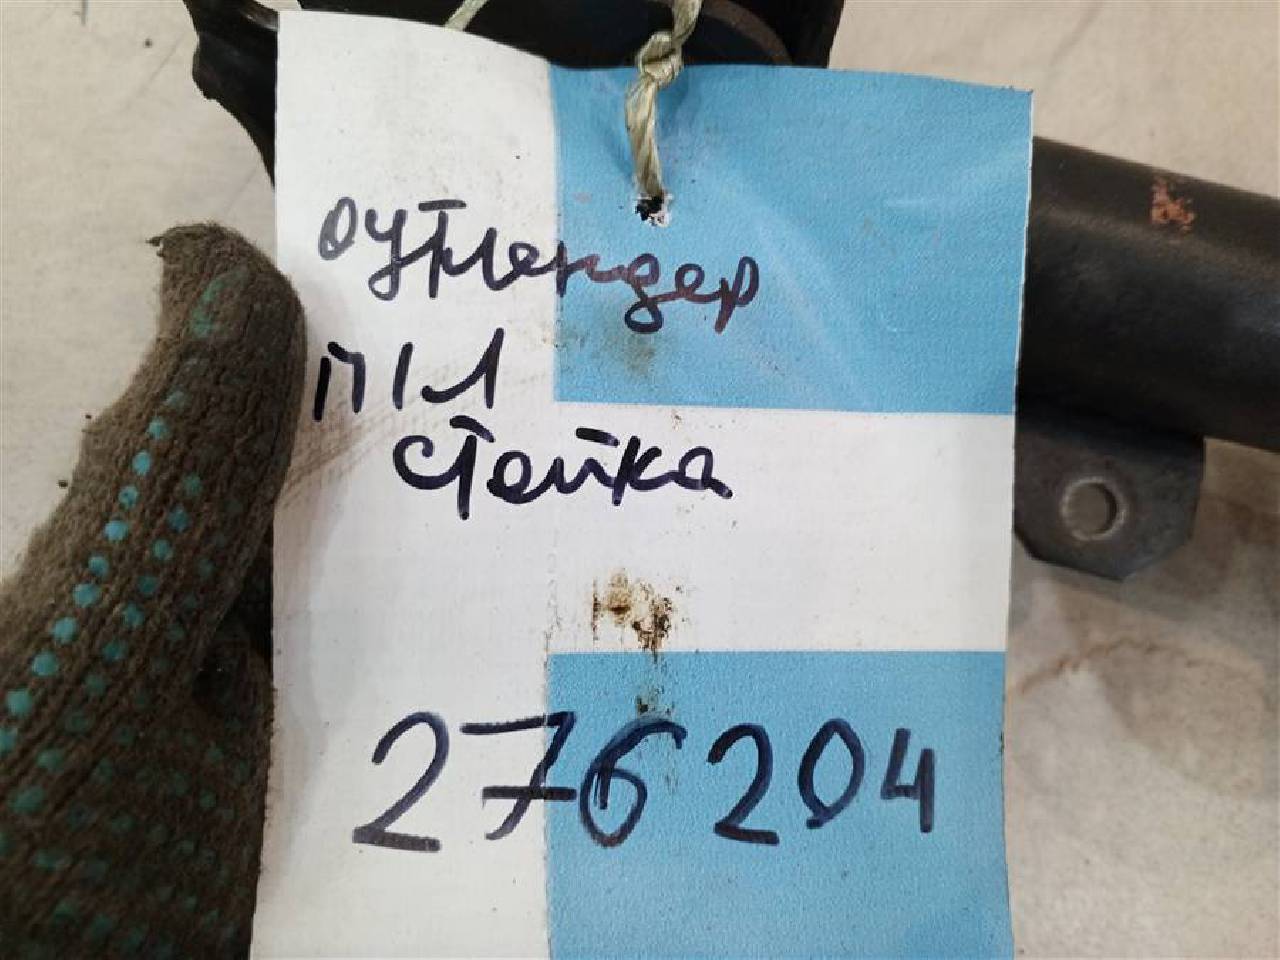 оутлендер
п/л
стойка
276204